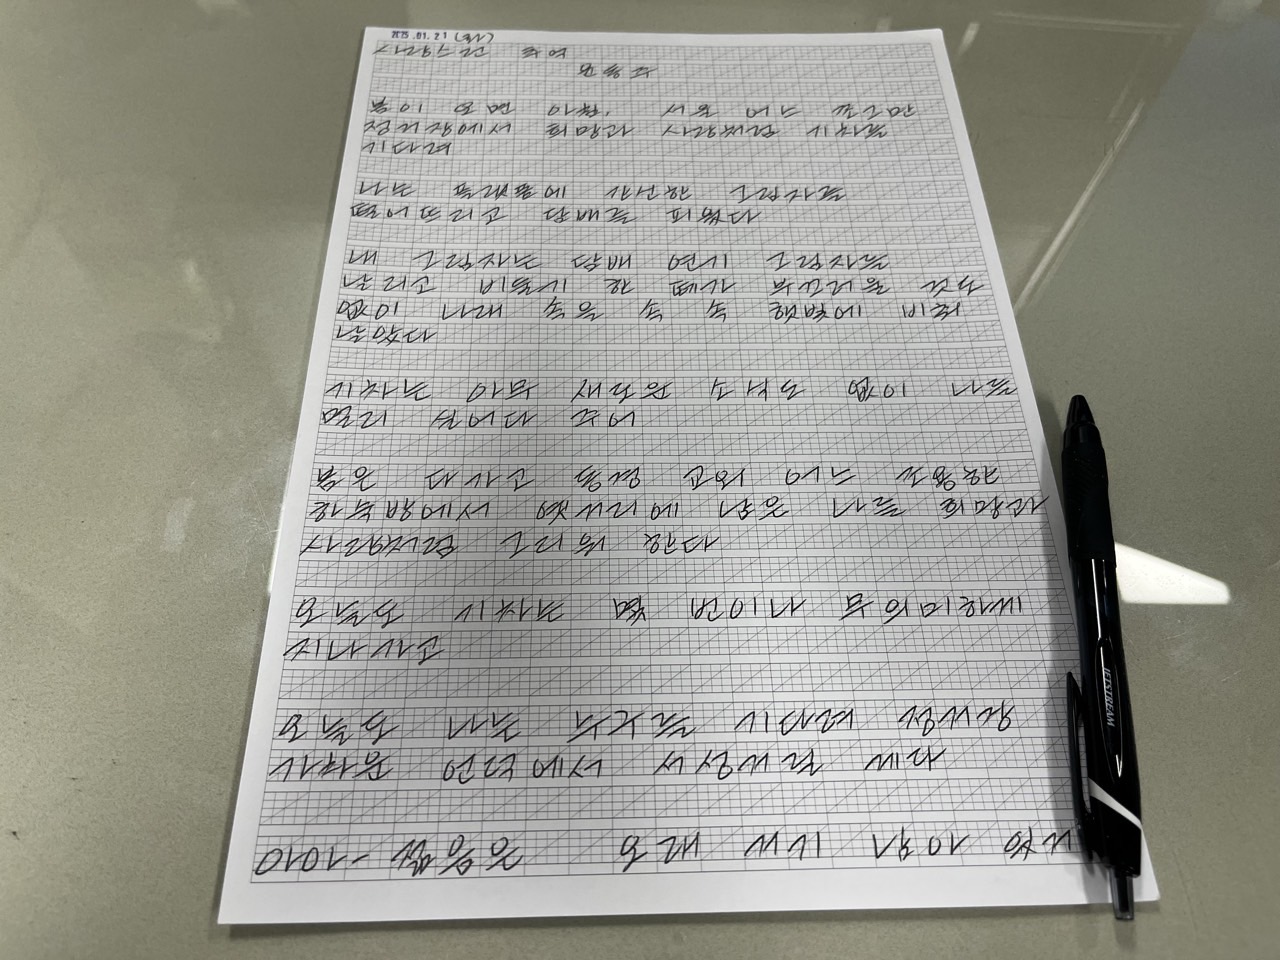 2025.01.21 (화)
사랑스런 추억
윤동주
봄이 오던 아침, 서울 어느 쪼그만
정거장에서 희망과 사랑처럼 기차를
기다려
나는 플랫폼에 간신한 그림자를
떨어뜨리고 담배를 피웠다
내 그림자는 담배 연기 그림자를
날리고 비둘기 한 떼가 부끄러울 것도
없이 나래 속을 속 속 햇빛에 비춰
날았다
기차는 아무 새로운 소식도 없이 나를
멀리 실어다 주어
봄은 다 가고 동경 교외 어느 조용한
하숙방에서 옛거리에 남은 나를 희망과
사랑처럼 그리워 한다
오늘도 기차는 몇 번이나 무의미하게
지나가고
오늘도 나는 누구를 기다려 정거장
가차운 언덕에서 서성거릴 게다
아아- 젊음은 오래 거기 남아 있거
JETSTREAM